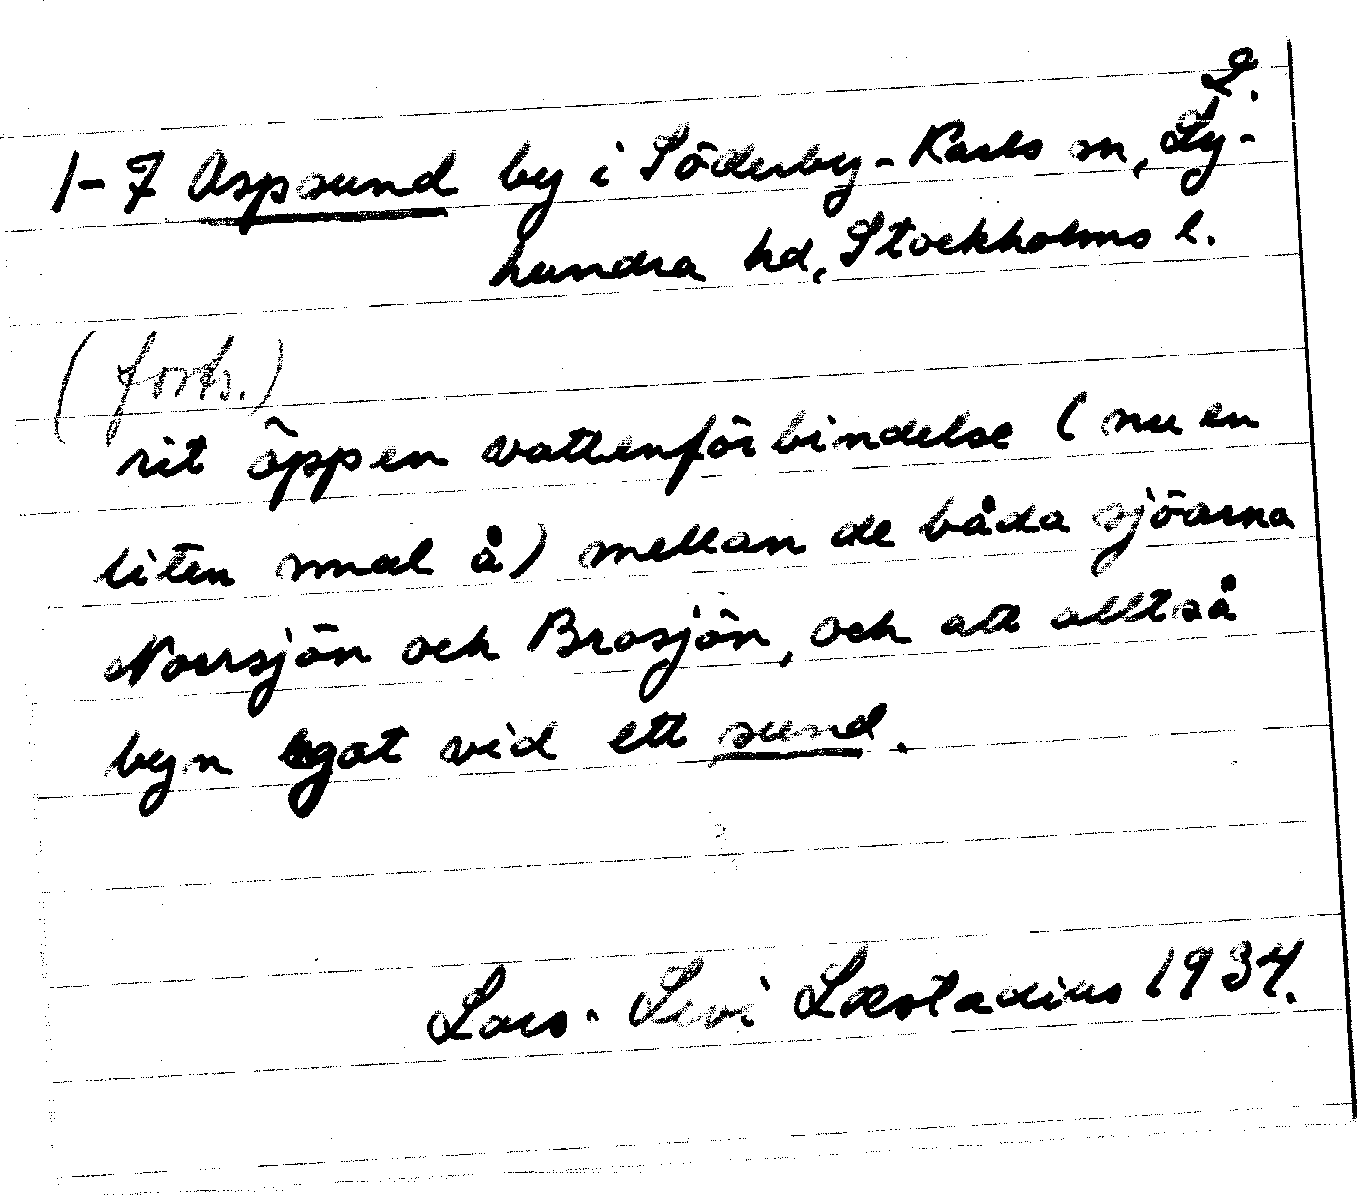 2.
1-7 Aspsund by i Söderby-Karls sn, Ly-
hundra hd, Stockholms l.
(forts.)
rit öppen vattenförbindelse (nu en
liten smal å) mellan de båda sjöarna
Norrsjön och Brosjön, och att alltså
byn legat vid ett sund.
Lars-Levi Læstadius 1934.